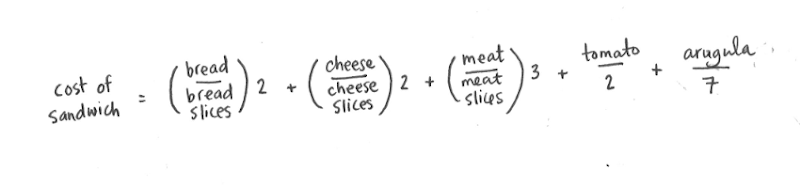 cost of sandwich = (bread / bread slices) 2 + (cheese / cheese slices) 2 + (meat / meat slices) 3 + tomato / 2 + arugula / 7